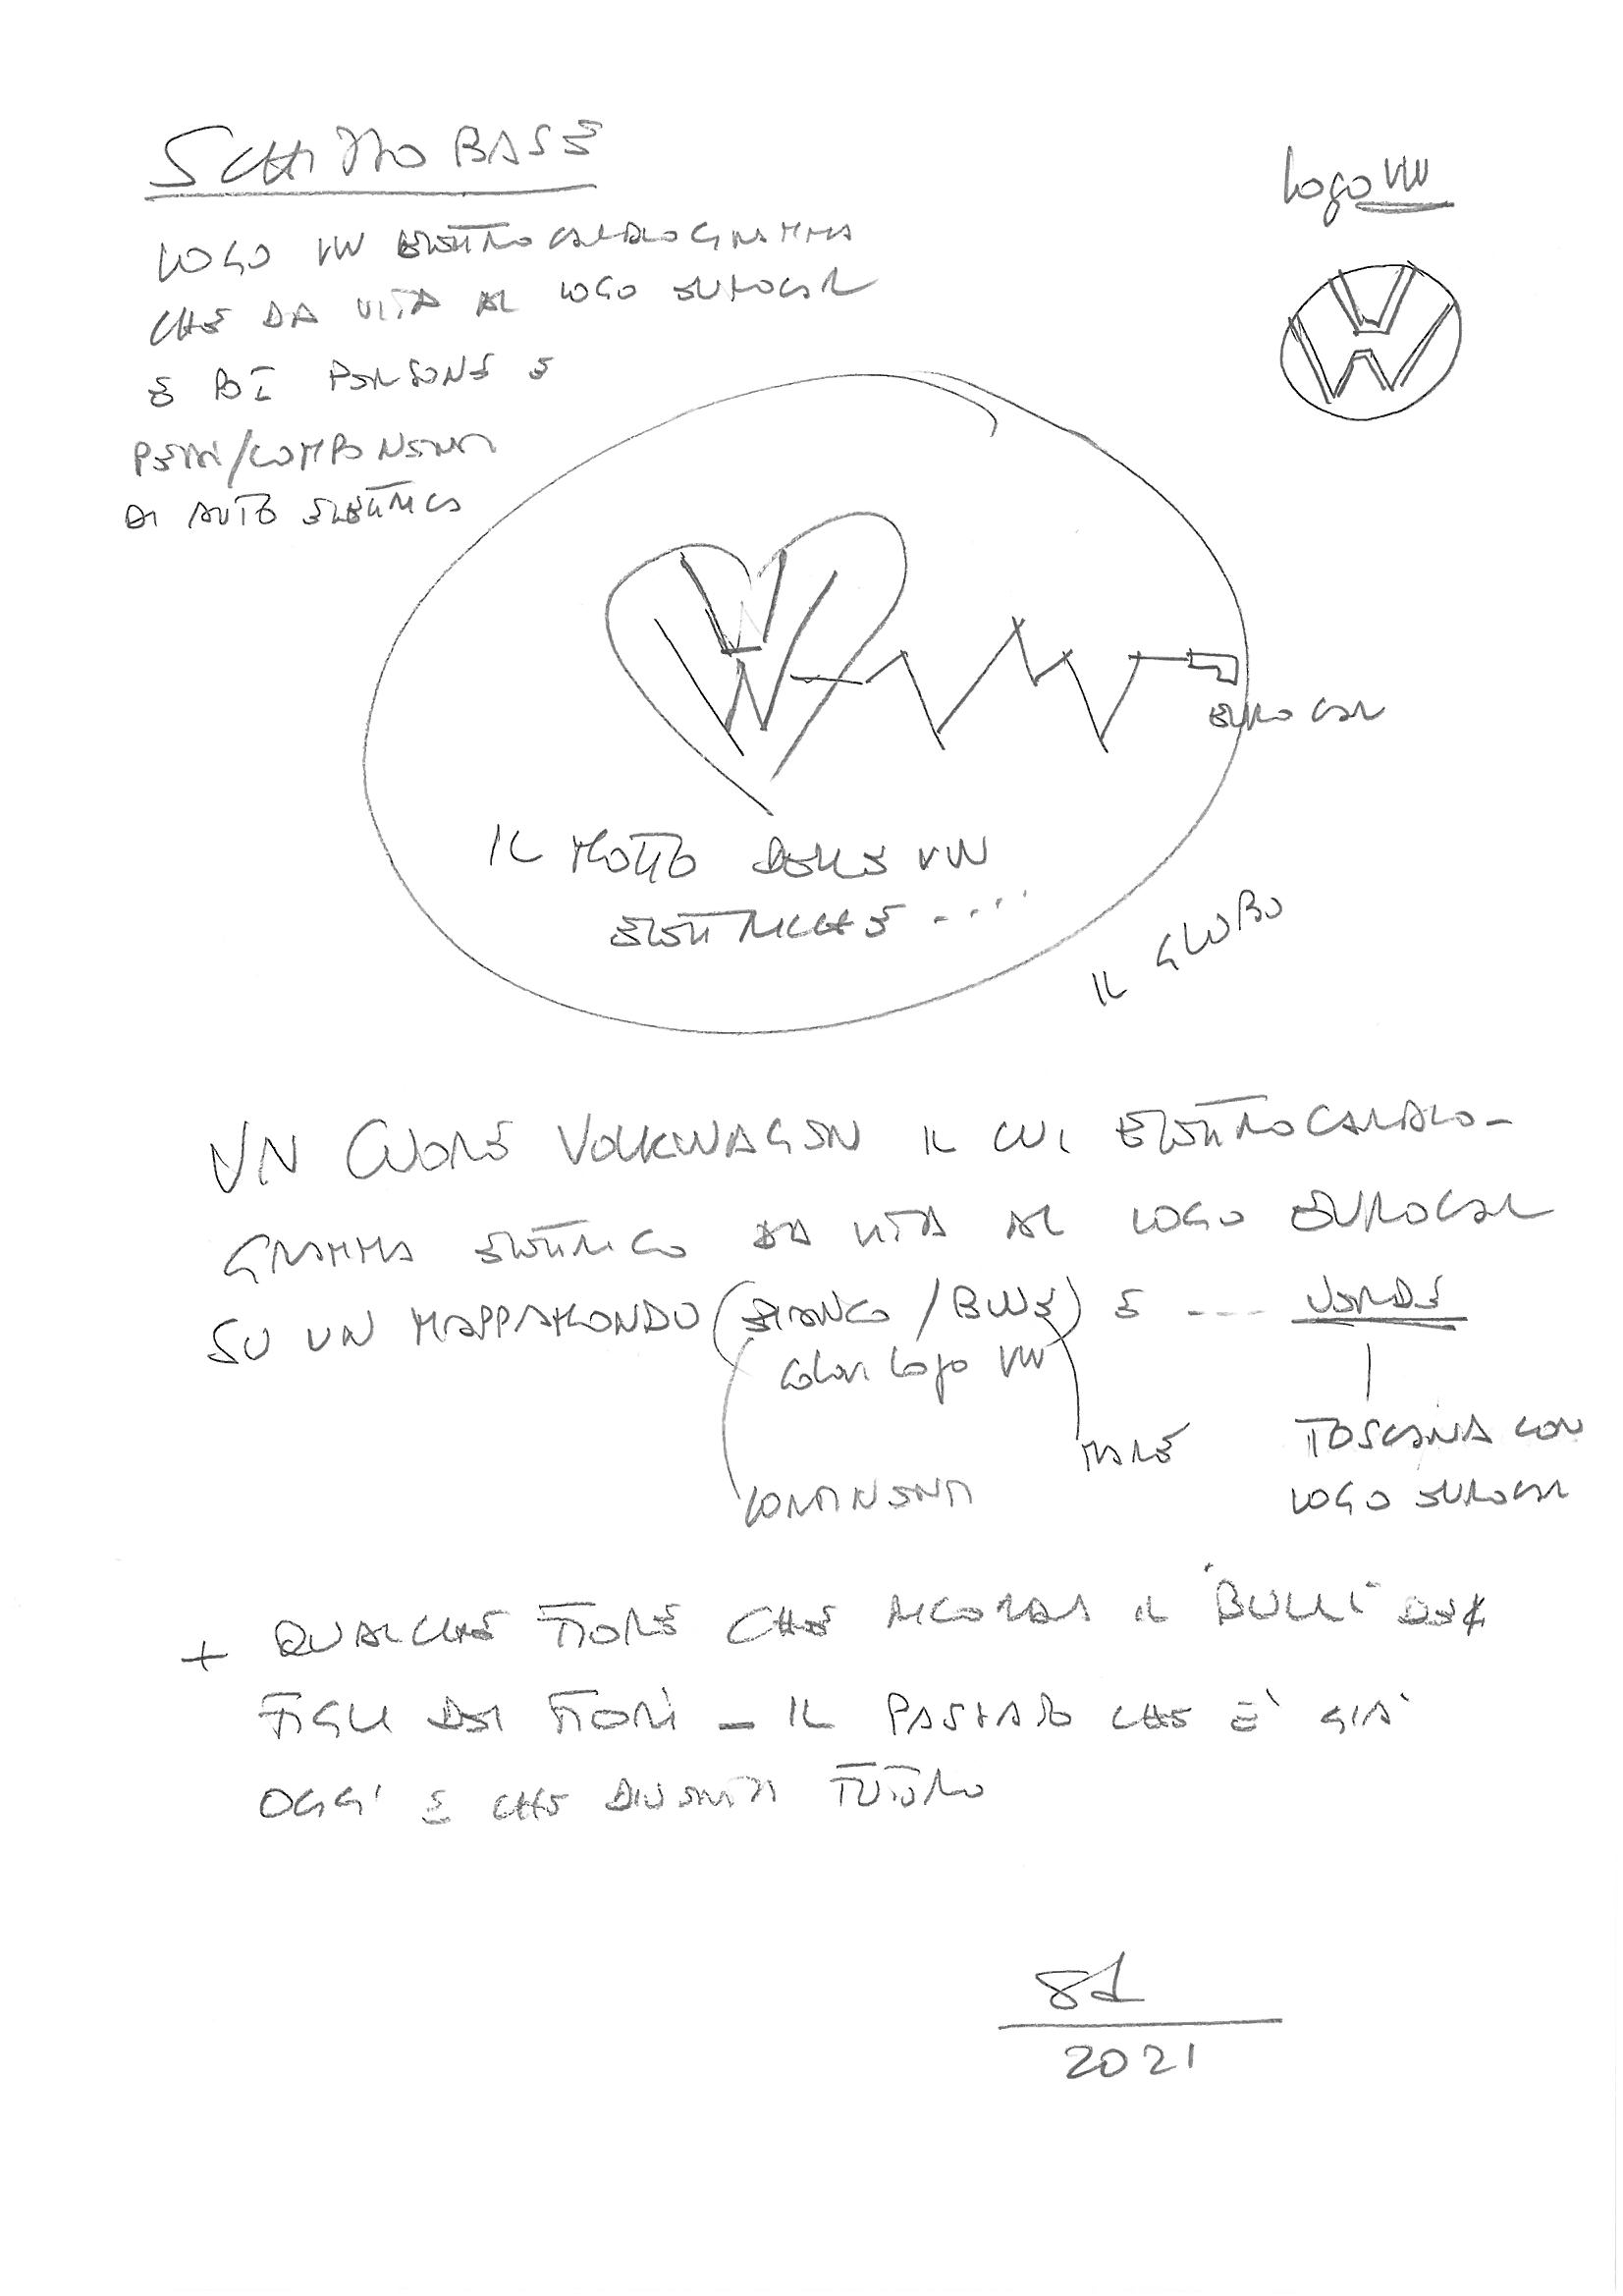 SCHIZZO BASE
LOGO VW ELETTROCARDIOGRAMMA
CHE DA VITA AL LOGO EUROCAR
E POI PERSONE E
PEZZI/COMPONENTI
DI AUTO ELETTRICA
Logo VW
VW
VW
EUROCAR
IL MOTTO DELLE VW
ELETTRICHE ....
IL GLOBO
UN CUORE VOLKWAGEN IL CUI ELETTROCARDIO-
GRAMMA ELETTRICO DA VITA AL LOGO EUROCAR
SU UN MAPPAMONDO (BIANCO / BLUE) E ---- VERDE
Colori Logo VW
CONTINENTI
MARE
TOSCANA CON
LOGO EUROCAR
+ QUALCHE FIORE CHE RICORDA IL "BULLI" DEI
FIGLI DEI FIORI - IL PASSATO CHE E' GIA'
OGGI E CHE DIVENTA FUTURO
81
2021